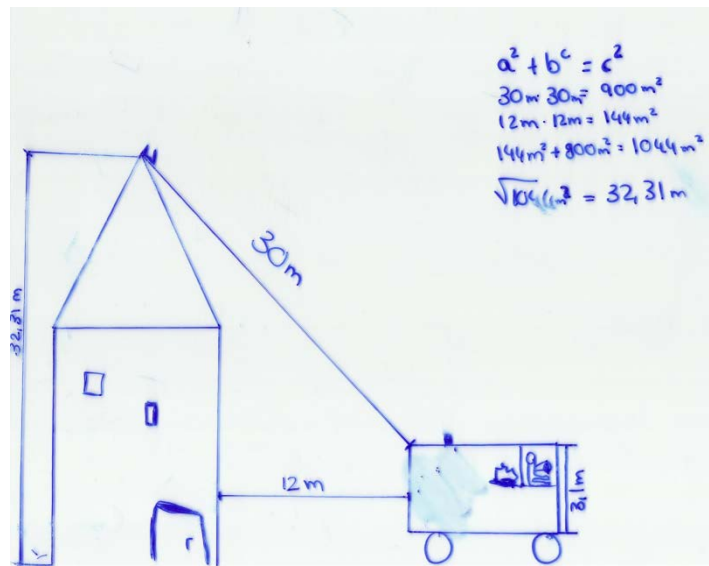 a² + bᶜ = c²
30m · 30m = 900m²
12m · 12m = 144m²
144m² + 800m² = 1044m²
√1044m² = 32,31m
30m
32,31 m
12m
3,1m